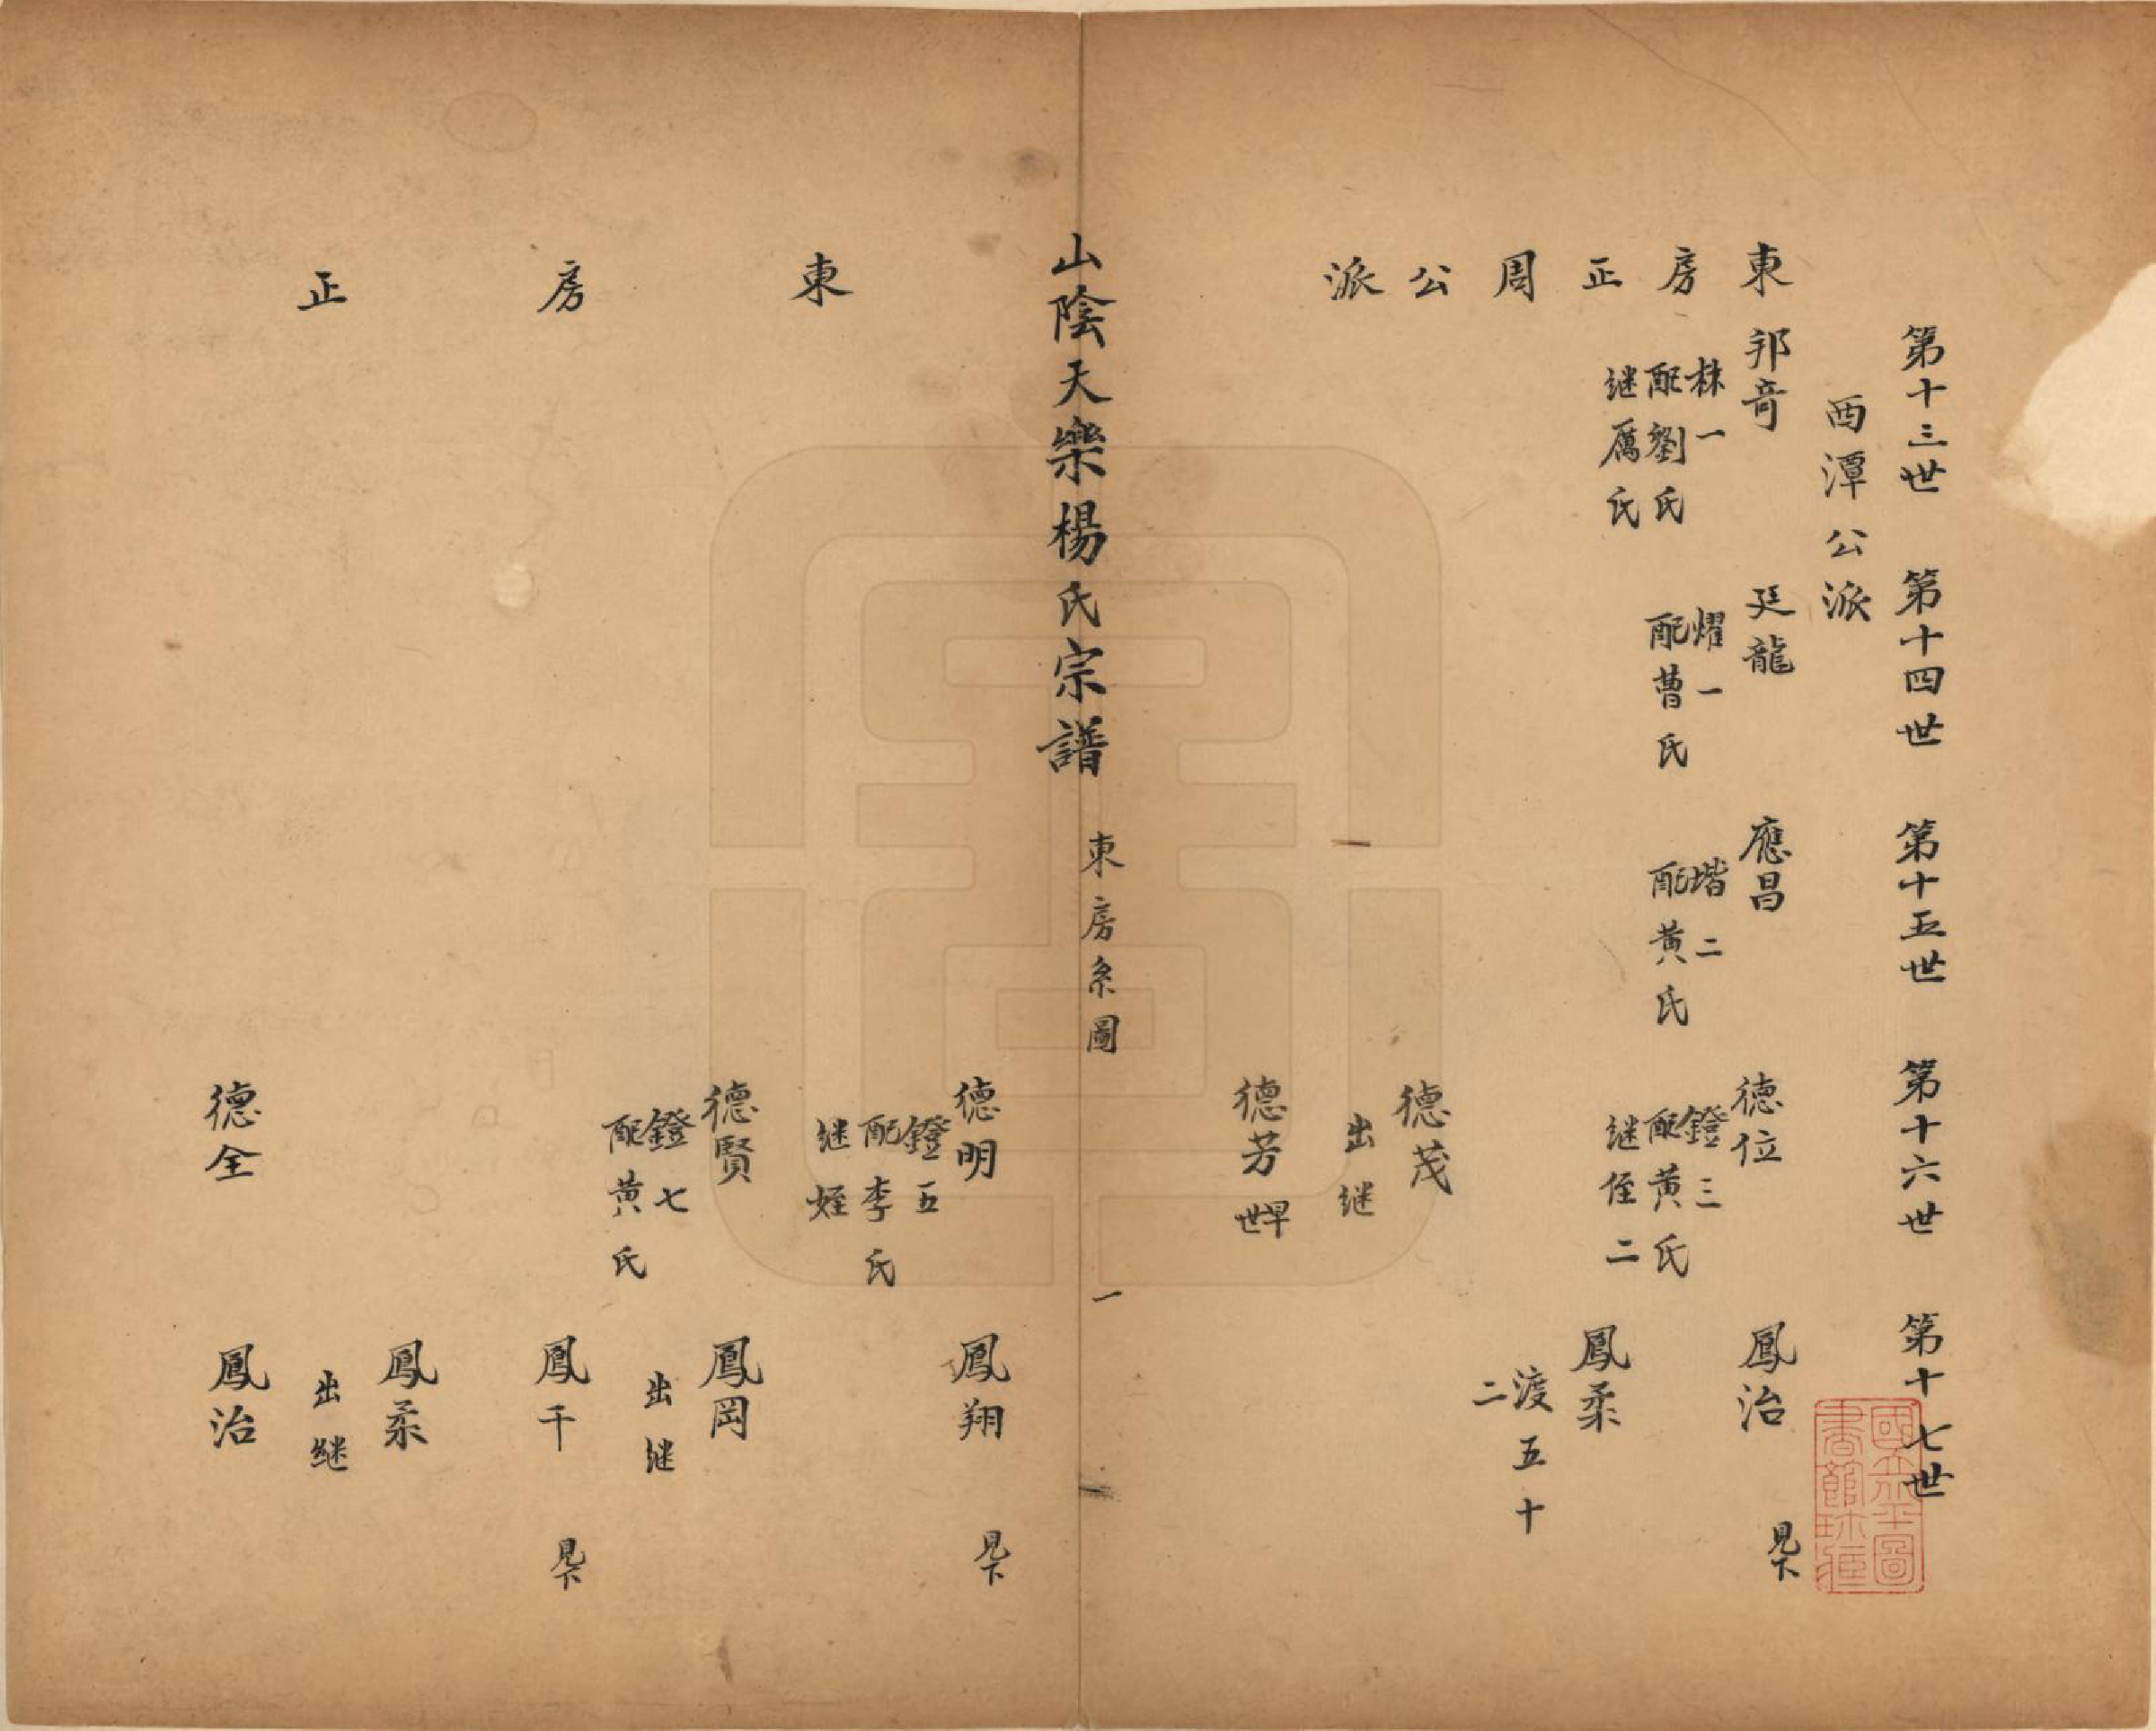 第十三世 第十四世 第十五世 第十六世 第十七世
酉潭公派
東房正周公派
邦奇
株一
配劉氏
继厲氏
廷龍
燿一
配曹氏
應昌
堦二
配黄氏
德位
鐙三
配黄氏
继侄二
鳳治
見下
鳳柔
渡五十二
德茂
出继
德芳
早世
山陰天樂楊氏宗譜 東房系圖 一
東房正
德明
鐙五
配李氏
继姪
鳳翔
見下
德賢
鐙七
配黄氏
鳳岡
出继
鳳干
見下
鳳柔
出继
德全
鳳治
國立北平圖書館珍藏